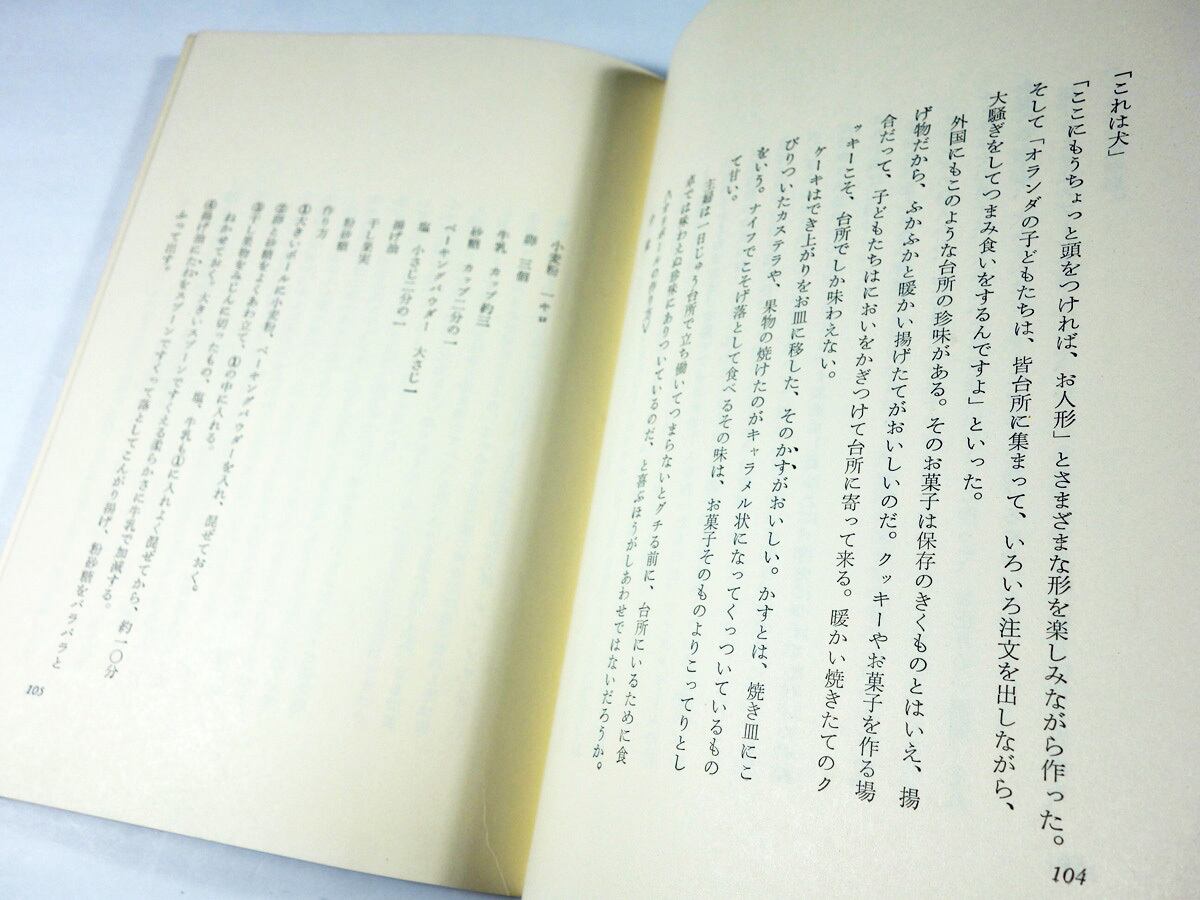 「これは犬」
「ここにもうちょっと頭をつければ、お人形」とさまざまな形を楽しみながら作った。
そして「オランダの子どもたちは、皆台所に集まって、いろいろ注文を出しながら、
大騒ぎをしてつまみ食いをするんですよ」といった。
外国にもこのような台所の珍味がある。そのお菓子は保存のきくものとはいえ、揚
げ物だから、ふかふかと暖かい揚げたてがおいしいのだ。クッキーやお菓子を作る場
合だって、子どもたちはにおいをかぎつけて台所に寄って来る。暖かい焼きたてのク
ッキーこそ、台所でしか味わえない。
ケーキはでき上がりをお皿に移した、そのかすがおいしい。かすとは、焼き皿にこ
びりついたカステラや、果物の焼けたのがキャラメル状になってくっついているもの
をいう。ナイフでこそげ落として食べるその味は、お菓子そのものよりこってりとし
て甘い。
主婦は一日じゅう台所で立ち働いてつまらないとグチる前に、台所にいるために食
卓では味わえぬ珍味にありついているのだ、と喜ぶほうがしあわせではないだろうか。
の作り方
104
小麦粉 一キロ
卵 三個
牛乳 カップ約三
砂糖 カップ二分の一
ベーキングパウダー 大さじ一
塩 小さじ二分の一
揚げ油
干し果実
粉砂糖
作り方
①大きいボールに小麦粉、ベーキングパウダーを入れ、混ぜておく。
②卵と砂糖をよくあわ立て、①の中に入れる。
③干し果物をみじんに切ったもの、塩、牛乳も①に入れよく混ぜてから、約一〇分
ねかせておく。大きいスプーンですくえる柔らかさに牛乳で加減する。
④揚げ油にたねをスプーンですくって落としてこんがり揚げ、粉砂糖をパラパラと
ふって出す。
105